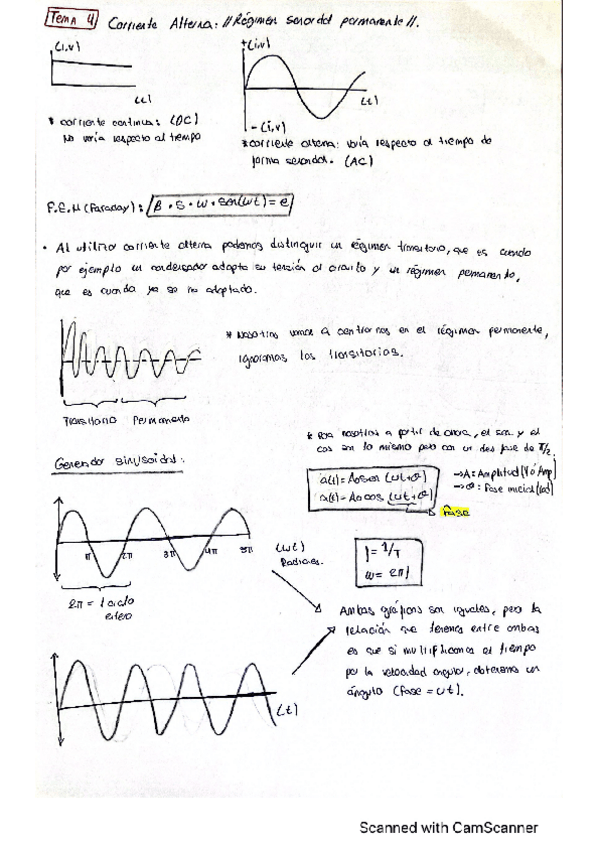 Tema 4 Corriente Alterna: //Régimen senoidal permanente//.
(i,v)
+(i,v)
(t)
(t)
-(i,v)
* corriente continua: (DC)
No varía respecto al tiempo
* corriente alterna: varía respecto al tiempo de
forma senoidal. (AC)
F.E.M (Faraday): β · S · w · sen(wt) = e
· Al utilizar corriente alterna podemos distinguir un régimen transitorio, que es cuando
por ejemplo un condensador adapta su tensión al circuito y un régimen permanente,
que es cuando ya se ha adaptado.
* Nosotros vamos a centrarnos en el régimen permanente,
ignoramos los transitorios.
Transitorio Permanente
* Para nosotros a partir de ahora, el sen y el
cos son lo mismo pero con un desfase de π/2.
Generador sinusoidal:
a(t)=Aosen (wt+θ)
a(t)=Aocos (wt+θ)
→A: Amplitud (V ó Amp)
→θ: Fase inicial (rad)
Fase
π 2π 3π 4π 5π
(wt)
Radianes.
f=1/T
w= 2πf
2π = 1 ciclo
entero
Ambas gráficas son iguales, pero la
relación que tenemos entre ambas
es que si multiplicamos el tiempo
por la velocidad angular, obtenemos un
ángulo (fase = wt).
(t)
Scanned with CamScanner